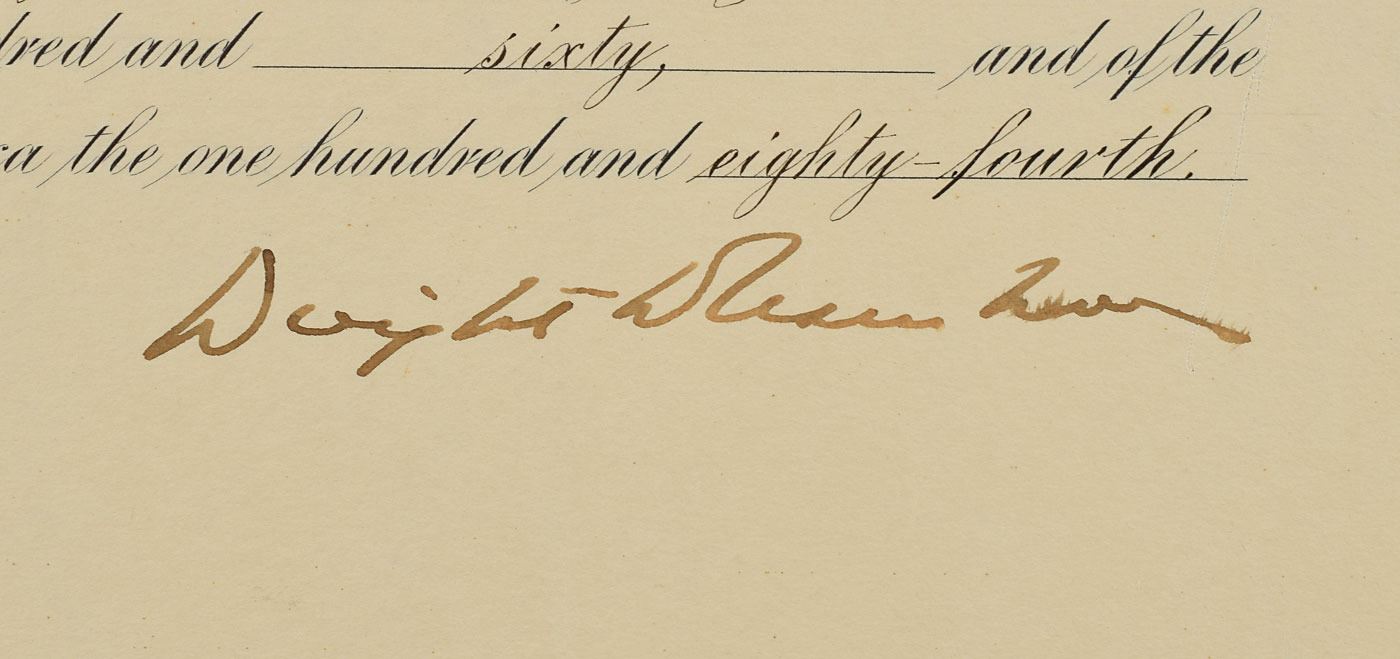 dred and sixty, and of the
ca the one hundred and eighty-fourth.
Dwight D Eisenhower